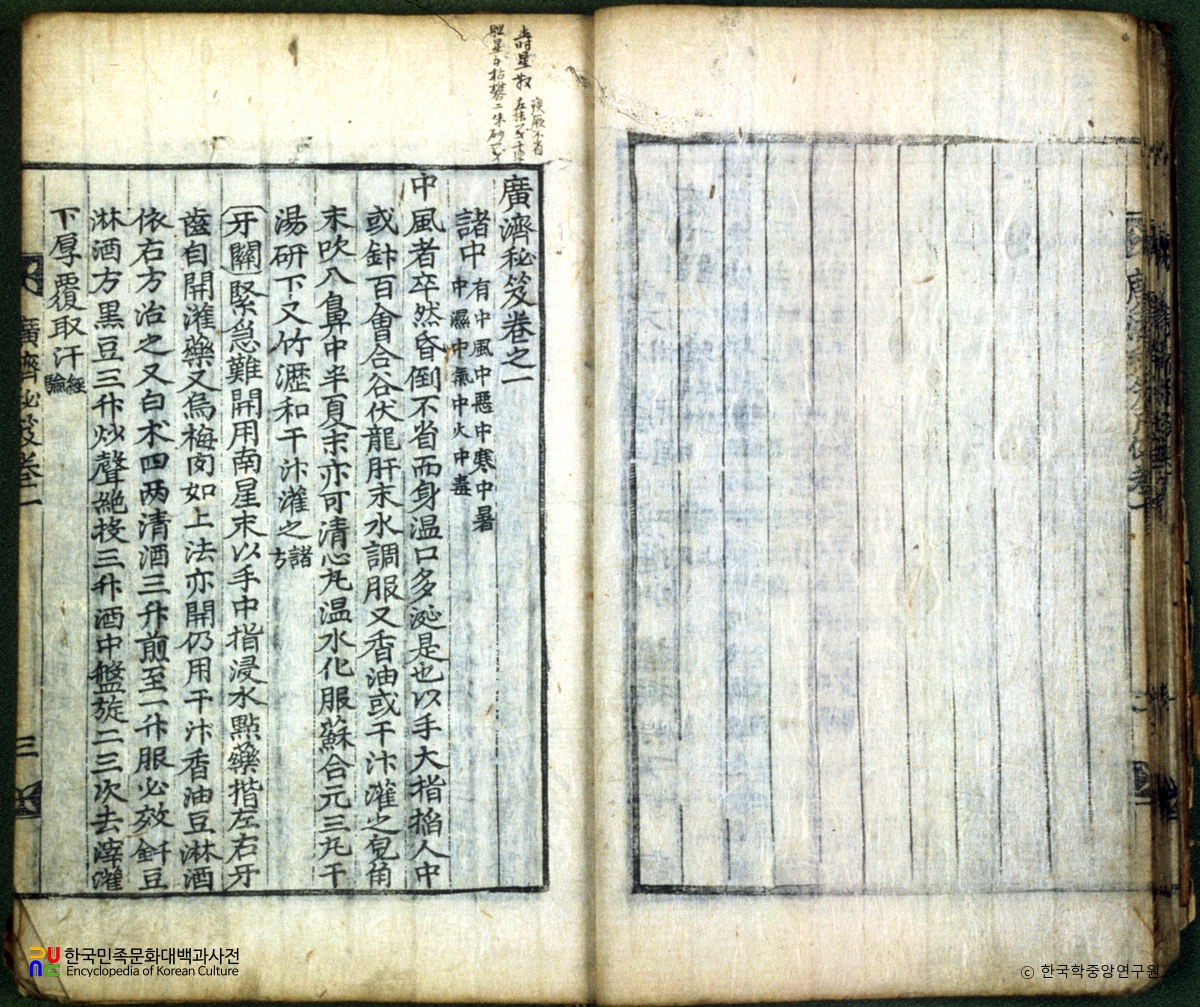 廣濟秘笈卷之一
諸中 有中風中惡中寒中暑
中濕中氣中火中毒
中風者卒然昏倒不省而身温口多涎是也以手大指掐人中
或針百會合谷伏龍肝末水調服又香油或干汁灌之皂角
末吹入鼻中半夏末亦可清心丸温水化服蘇合元三丸干
湯研下又竹瀝和干汁灌之 諸方
牙關緊急難開用南星末以手中指浸水點藥揩左右牙
齒自開灌藥又烏梅肉如上法亦開仍用干汁香油豆淋酒
依右方治之又白朮四两清酒三升煎至一升服必效 豆
淋酒方黒豆三升炒聲絶投三升酒中盤旋二三次去滓灌
下厚覆取汗 經驗
廣濟秘笈卷一
三
壽星散
膽星 枯礬二 朱砂
한국민족문화대백과사전
Encyclopedia of Korean Culture
© 한국학중앙연구원